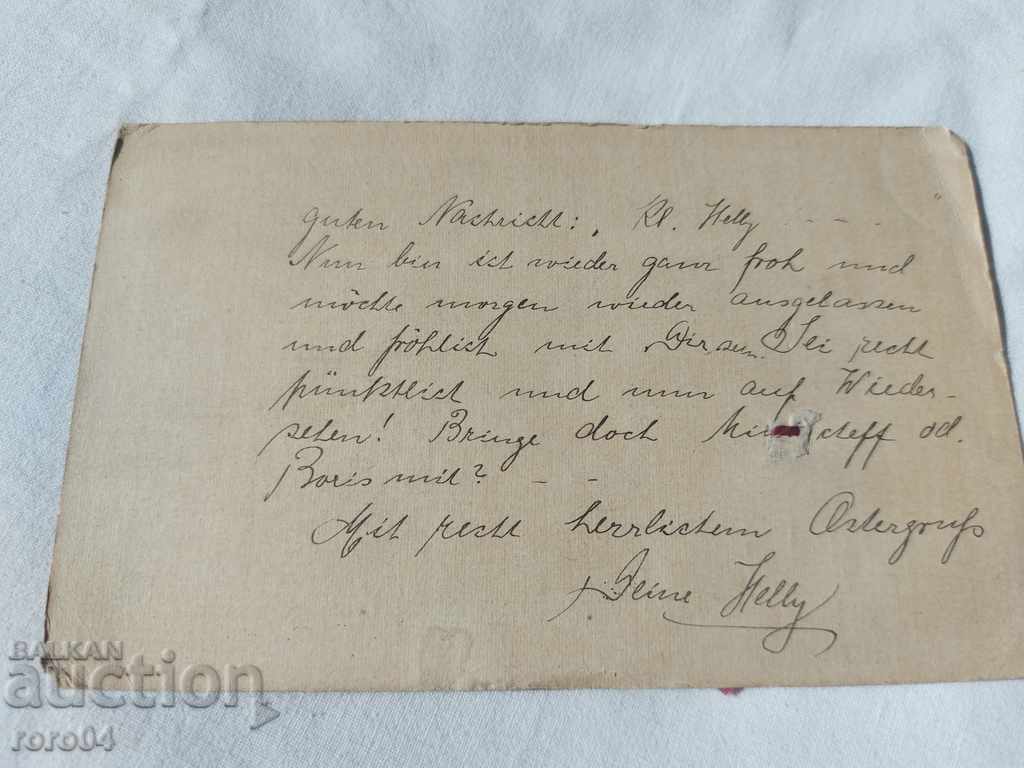 guten Nachricht: „ Kl. Helly - - - "
Nun bin ich wieder ganz froh und
möchte morgen wieder ausgelassen
und fröhlich mit Dir sein. Sei recht
pünktlich und nun auf Wieder-
sehen! Bringe doch od.
Boris mit? - -
Mit recht herzlichem Ostergruß
Deine Helly
BALKAN
auction
roro04